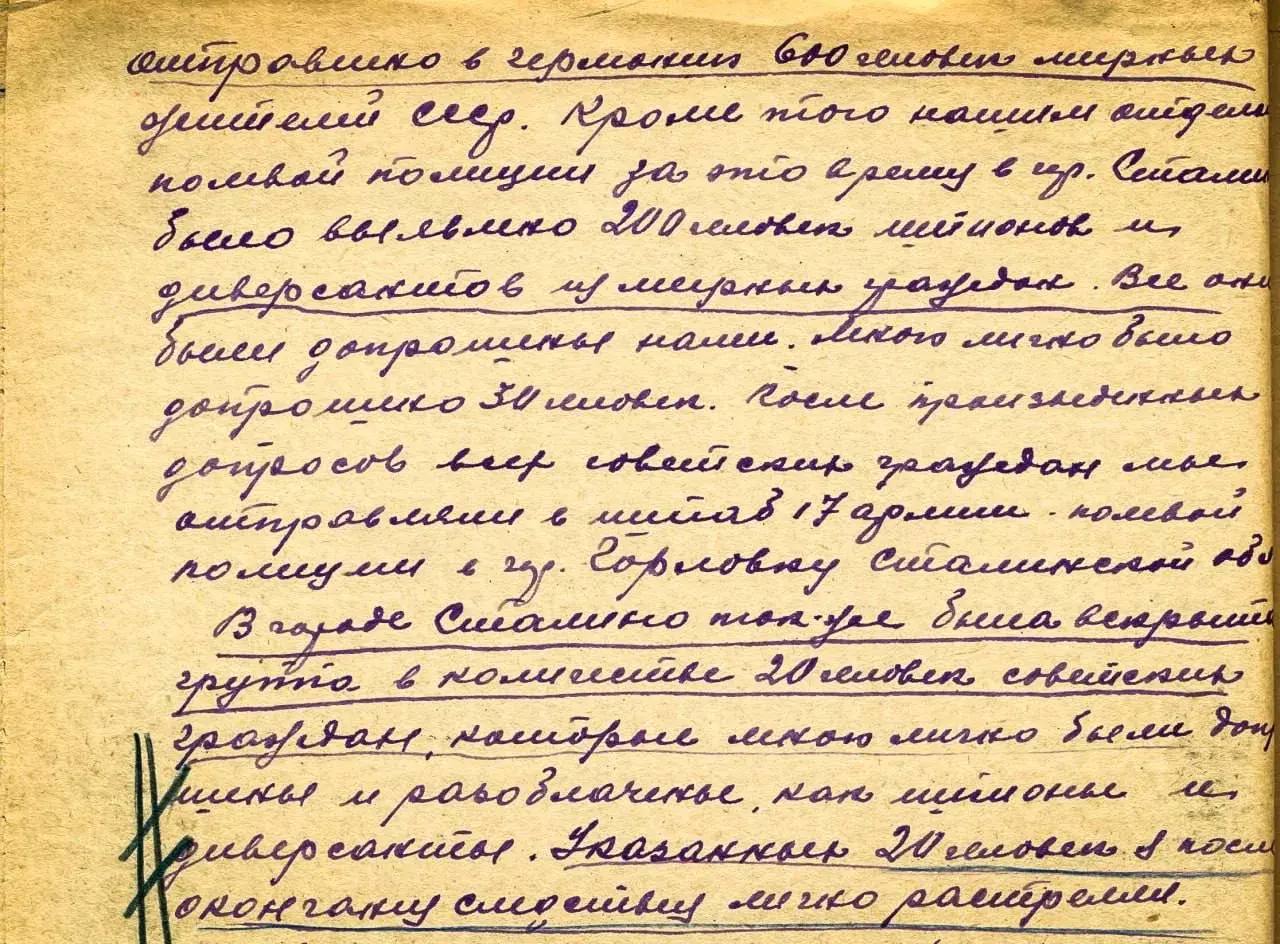 отправлено в германию 600 человек мирных
жителей ссср. Кроме того нашим отдело
полевой полиции за это время в гор. Стали
было выявлено 200 человек шпионов и
диверсантов из мирных граждан. Все они
были допрошены нами. Мною лично было
допрошено 30 человек. После произведенных
допросов всех советских граждан мы
отправляли в штаб 17 армии полевой
полиции в гор. Горловку Сталинской обл
В городе Сталино так-же была вскрыта
группа в количестве 20 человек советских
граждан, которые мною лично были допр
шены и разоблачены, как шпионы и
диверсанты. Указанных 20 человек я после
окончания следствия лично растрелял.